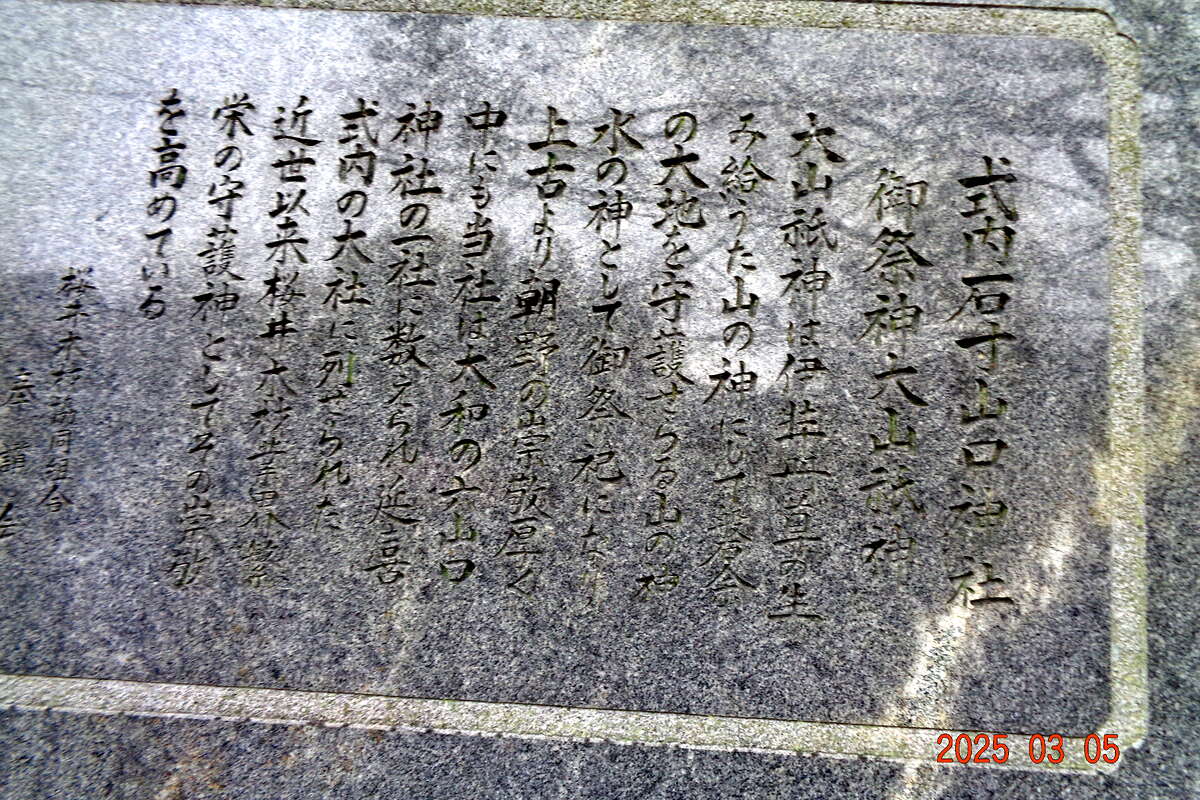 式内石寸山口神社
御祭神大山祇神
大山祇神は伊弉冊尊の生
み給うた山の神にして倉
の大地を守護さらる山の神
水の神として御祭祀になり
上古より朝野の崇敬厚く
中にも当社は大和の六山口
神社の一社に数えられ延喜
式内の大社に列せられた
近世以来桜井木材業界繁
栄の守護神としてその崇敬
を高めている
桜井木材
2025 03 05